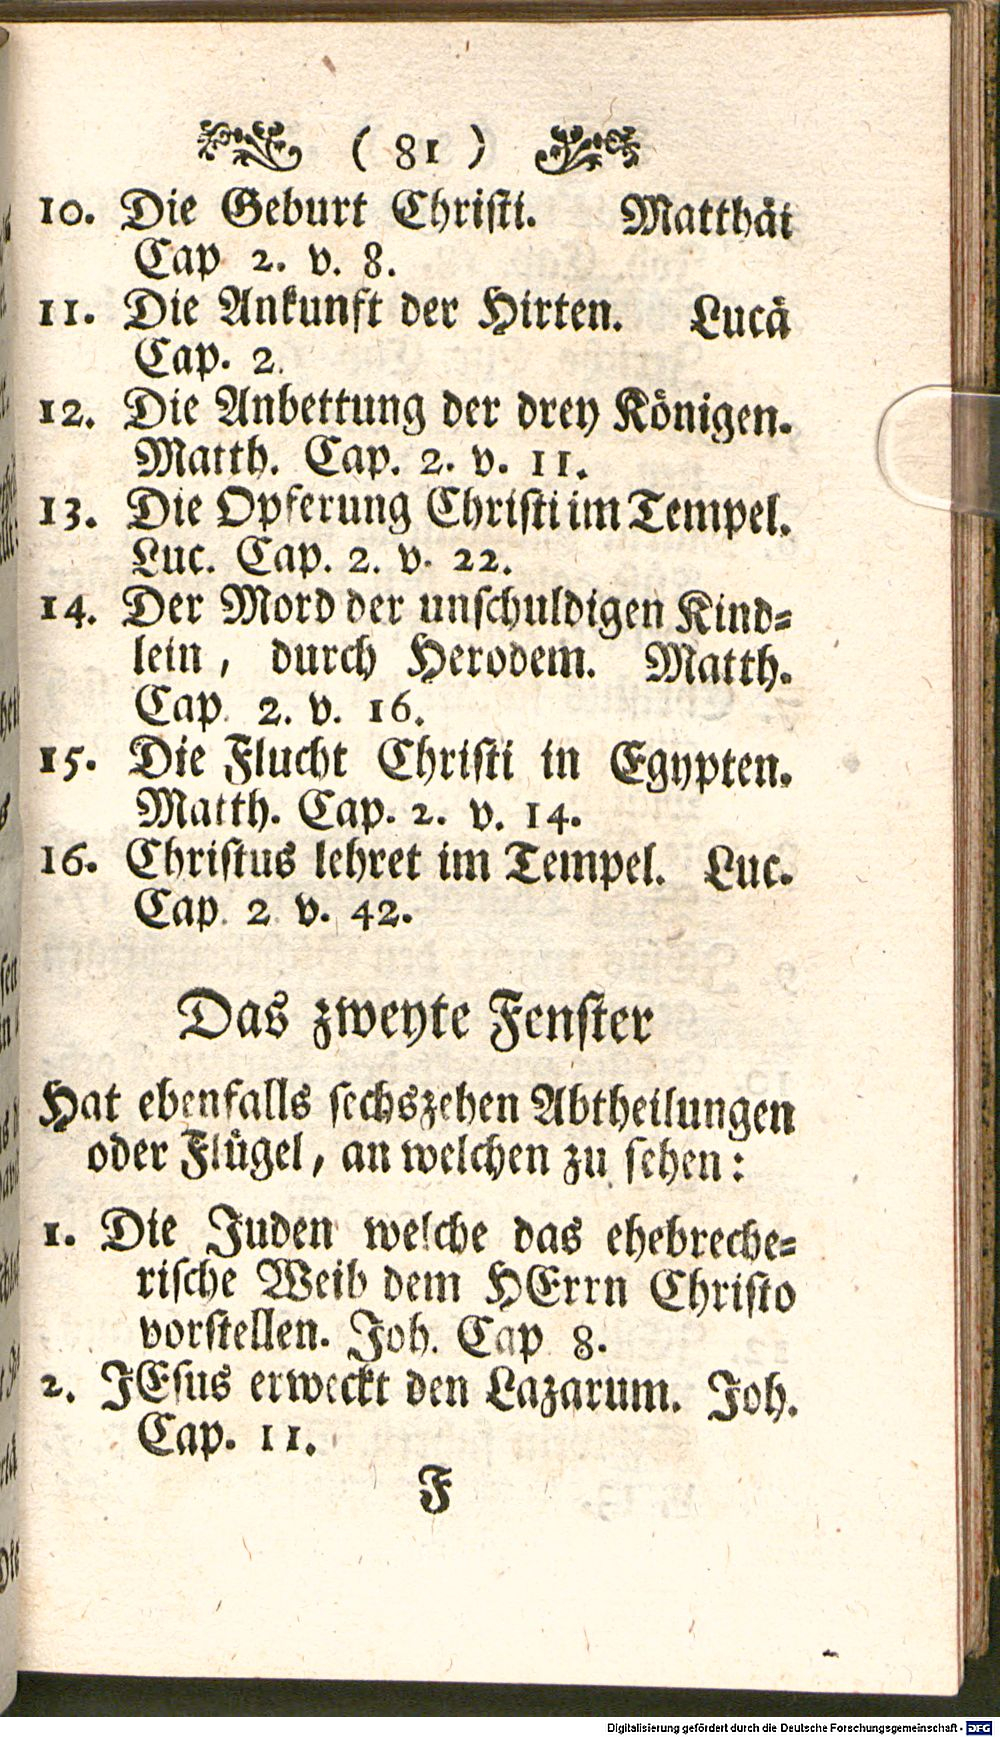 ( 81 )
10. Die Geburt Christi. Matthäi
Cap 2. v. 8.
11. Die Ankunft der Hirten. Lucä
Cap. 2.
12. Die Anbettung der drey Königen.
Matth. Cap. 2. v. 11.
13. Die Opferung Christi im Tempel.
Luc. Cap. 2. v. 22.
14. Der Mord der unschuldigen Kind=
lein, durch Herodem. Matth.
Cap. 2. v. 16.
15. Die Flucht Christi in Egypten.
Matth. Cap. 2. v. 14.
16. Christus lehret im Tempel. Luc.
Cap. 2 v. 42.
Das zweyte Fenster
Hat ebenfalls sechszehen Abtheilungen
oder Flügel, an welchen zu sehen:
1. Die Juden welche das ehebreche=
rische Weib dem HErrn Christo
vorstellen. Joh. Cap 8.
2. JEsus erweckt den Lazarum. Joh.
Cap. 11.
F
Digitalisierung gefördert durch die Deutsche Forschungsgemeinschaft - DFG